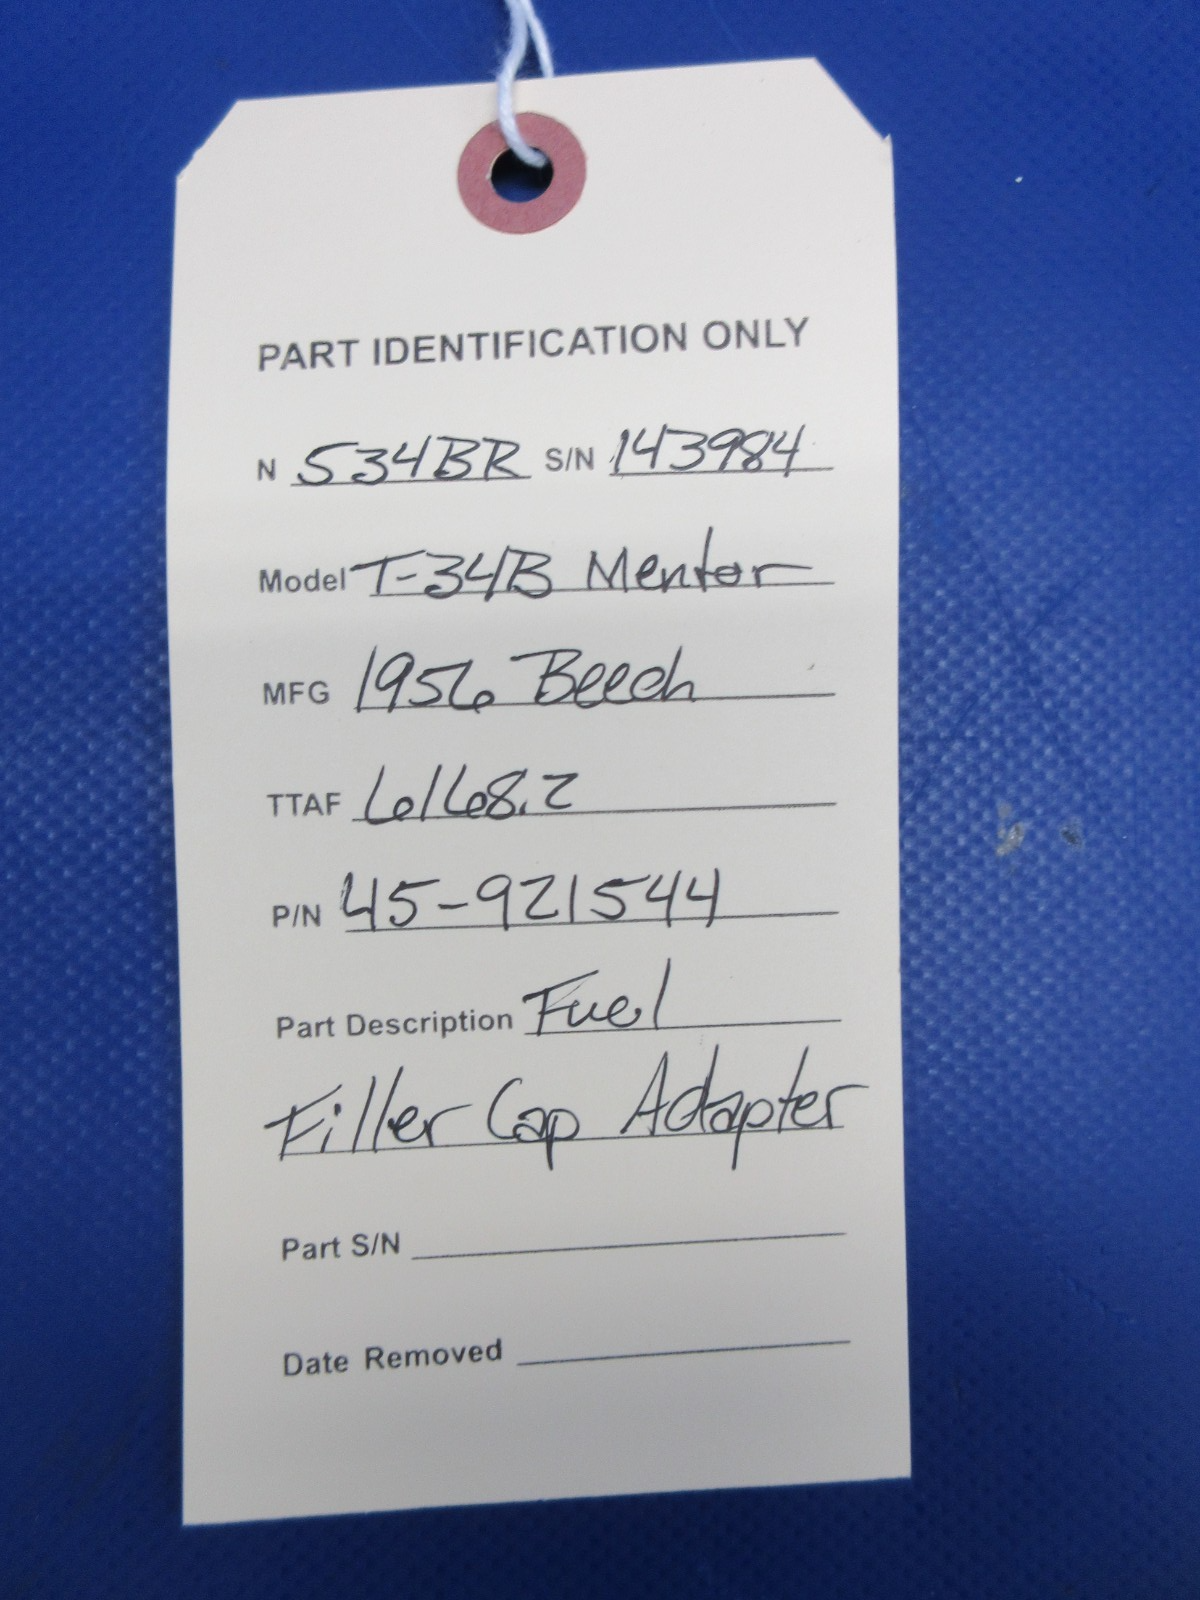 PART IDENTIFICATION ONLY
N 534BR S/N 143984
Model T-34B Mentor
MFG 1956 Beech
TTAF 6168.2
P/N 45-921544
Part Description Fuel
Filler Cap Adapter
Part S/N
Date Removed